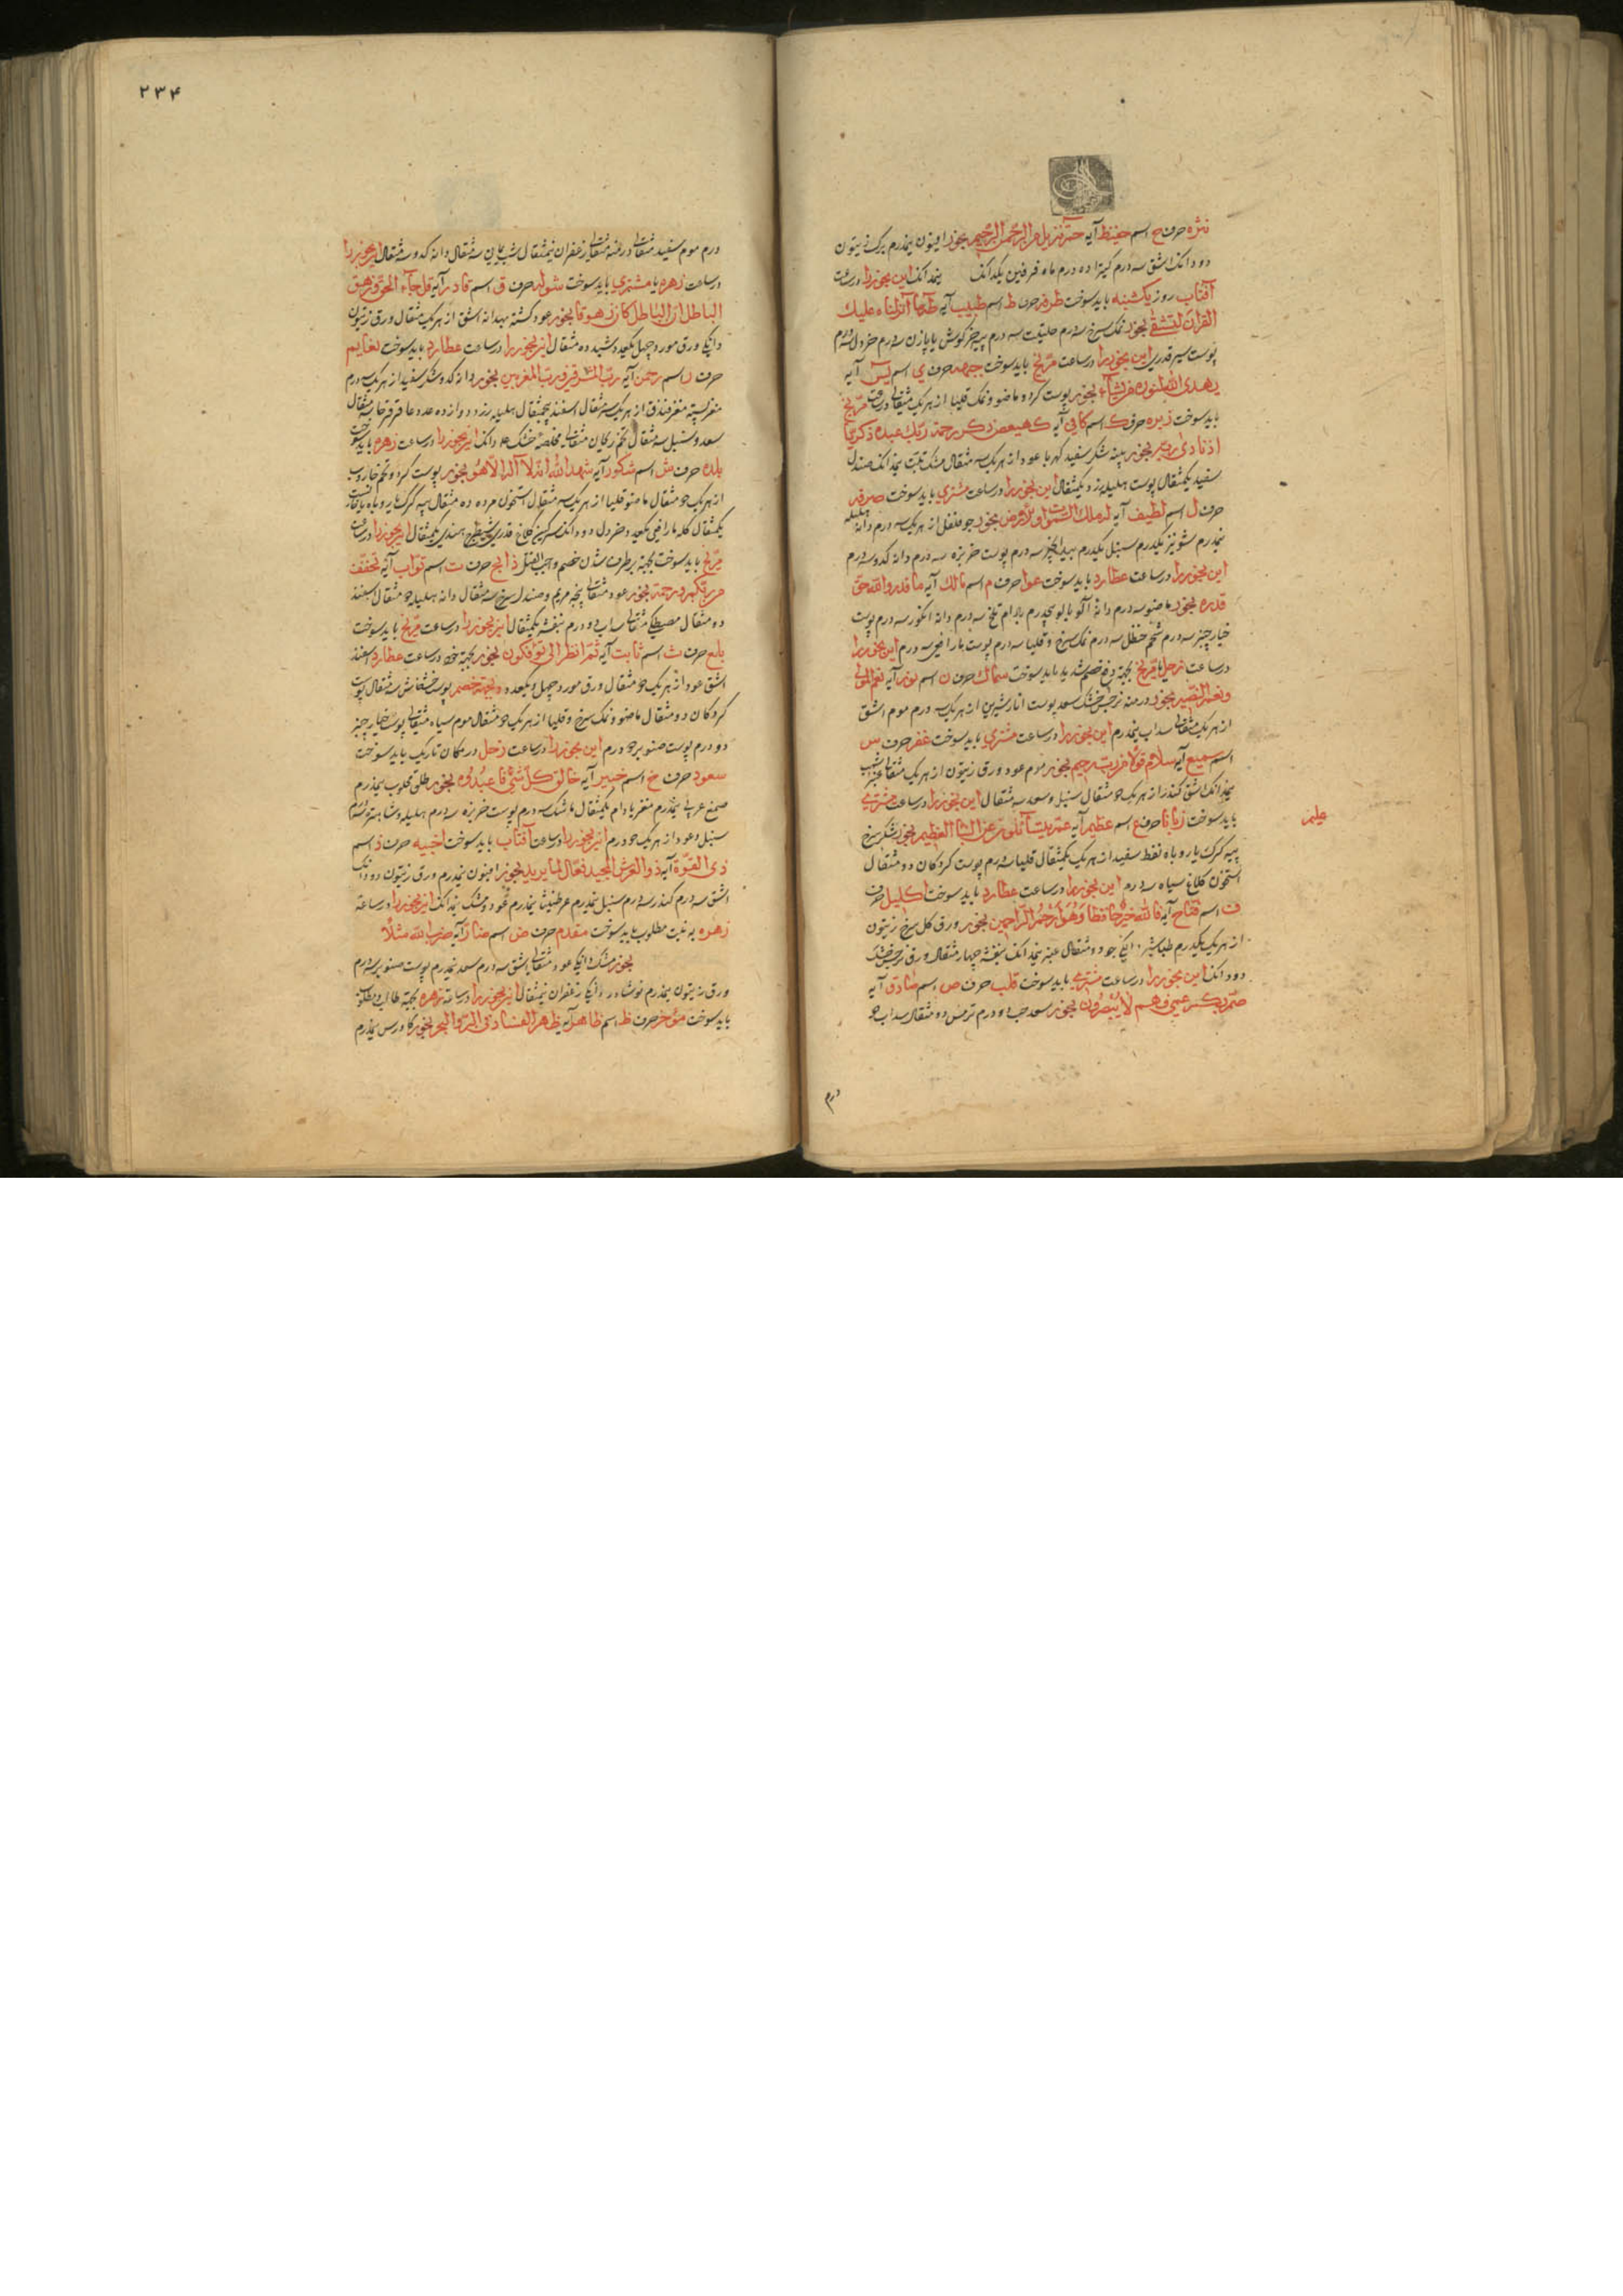 نثره حرف ح اسم حفیظ آیه حم تنزیل من الرحمن الرحیم بخور افیون نیمدرم برک زیتون
دو دانک اشق سه درم کتیرا ده درم ماه فرفین یکدانک نیمدانک این بخور را در ساعت
آفتاب روز یکشنبه باید سوخت طرفه حرف ط اسم طبیب آیه طه ما انزلناه علیک
القرآن لتشقی بخور نمک سرخ سه درم حلتیت سه درم پیه خرکوش یا پازن سه درم خردل سه درم
پوست سیر قدری این بخور را در ساعت مریخ باید سوخت جبهه حرف ی اسم یس آیه
یهدی الله لنوره من یشاء بخور پوست کردو ماضو و نمک قلیا از هر یک مثقالی در ساعت مریخ
باید سوخت زبره حرف ک اسم کافی آیه کهیعص ذکر رحمة ربک عبده زکریا
اذ نادی ربه بخور پینه شکر سفید کهربا عود از هر یک سه مثقال مشک تبت نیمدانک صندل
سفید یکمثقال پوست هلیله زرد یکمثقال این بخور را در ساعت مشتری باید سوخت صرفه
حرف ل اسم لطیف آیه له ملک السموات والارض بخور جو فلفل از هر یک سه درم دانه هلیله
نیمدرم شونیز یکدرم سنبل یکدرم بیدانجیر سه درم پوست خربزه سه درم دانه کدو سه درم
این بخور را در ساعت عطارد باید سوخت عوا حرف م اسم مالک آیه ما قدروا الله حق
قدره بخور ماضو سه درم دانه آلوبالو نیمدرم بادام تلخ سه درم دانه انکور سه درم پوست
خیارچنبر سه درم شحم حنظل سه درم نمک سرخ و قلیا سه درم پوست مار افعی سه درم این بخور را
در ساعت زحل یا مریخ بجهة دفع خصم شدید باید سوخت سماک حرف ن اسم نور آیه نعم المولی
ونعم النصیر بخور درمنه نرجس خشک سعد پوست انار شیرین از هر یک سه درم موم اشق
از هر یک مثقالی سداب نیمدرم این بخور را در ساعت مشتری باید سوخت غفر حرف س
اسم سمیع آیه سلام قولا من رب رحیم بخور موم عود ورق زیتون از هر یک مثقالی عنبر اشهب
نیمدانک اشق کندر از هر یک دو مثقال سنبل و سعد سه مثقال این بخور را در ساعت مشتری
باید سوخت زبانا حرف ع اسم عظیم آیه عم یتسآئلون عن النبأ العظیم بخور شکر سرخ
پیه کرک یا روباه نفط سفید از هر یک یکمثقال قلیا سه درم پوست کردکان دو مثقال
استخوان کلاغ سیاه سه درم این بخور را در ساعت عطارد باید سوخت اکلیل حرف
ف اسم فتاح آیه فالله خیر حافظا وهو ارحم الراحمین بخور ورق کل سرخ زیتون
از هر یک یکدرم طباشیر دانکی جو دو مثقال عنبر نیمدانک بنفشه چهار مثقال ورق نرجس خشک
دو دانک این بخور را در ساعت مشتری باید سوخت قلب حرف ص اسم صادق آیه
صم بکم عمی فهم لا یبصرون بخور سعد حب دو درم ترمس دو مثقال سداب دو
درم
۲۳۴
درم موم سفید مثقالی درمنه مثقالی زعفران نیمثقال شب یمانی سه مثقال دانه کدو سه مثقال این بخور را
در ساعت زهره یا مشتری باید سوخت شوله حرف ق اسم قادر آیه قل جآء الحق وزهق
الباطل ان الباطل کان زهوقا بخور عود کشنه بهدانه اشق از هر یک مثقال ورق زیتون
دانکی ورق مورد چهل یکعدد شیده ده مثقال این بخور را در ساعت عطارد باید سوخت نعایم
حرف ر اسم رحمن آیه رب المشرقین ورب المغربین بخور دانه کدو شکر سفید از هر یک سه درم
مغز پسته مغز فندق از هر یک سه مثقال اسفند پنجمثقال هلیله زرد دوازده عدد عاقرقرحا سه مثقال
سعد و سنبل سه مثقال تخم ریحان مثقالی خشک دانک این بخور را در ساعت زهره باید سوخت
بلده حرف ش اسم شکور آیه شهد الله انه لا اله الا هو بخور پوست کردو تخم خاروب
از هر یک دو مثقال ماضو قلیا از هر یک سه مثقال استخوان مرده ده مثقال پیه کرک یا روباه
یکمثقال کله مار افعی یکعدد خردل دو دانک سرکین کلاغ قدری هندی یکمثقال این بخور را در ساعت
مریخ باید سوخت بجهة برطرف شدن خصم واجب القتل ذابح حرف ت اسم تواب آیه تخفیف
من ربکم ورحمة بخور عود مثقالی پنجه مریم و صندل سرخ سه مثقال دانه هلیله دو مثقال اسفند
ده مثقال مصطکی مثقالی سداب دو درم بنفشه یکمثقال این بخور را در ساعت مریخ باید سوخت
بلع حرف ث اسم ثابت آیه ثم انظر انی یؤفکون بخور بجهة در ساعت عطارد اسفند
اشق عود از هر یک دو مثقال ورق مورد چهل و یکعدد و بجهة خصم پوست خشخاش سه مثقال پوست
کردکان دو مثقال ماضو و نمک سرخ و قلیا از هر یک دو مثقال موم سیاه مثقالی پوست خیارچنبر
دو درم پوست صنوبر دو درم این بخور را در ساعت زحل در مکان تاریک باید سوخت
سعود حرف خ اسم خبیر آیه خالق کل شئ فاعبدوه بخور طلق محلوب نیمدرم
صمغ عربی نیمدرم مغز بادام یکمثقال ماشک سه درم پوست خربزه سه درم هلیله
سنبل و عود از هر یک دو درم این بخور را در ساعت آفتاب باید سوخت اخبیه حرف ذ اسم
ذی القوة آیه ذو العرش المجید فعال لما یرید بخور افیون نیمدرم ورق زیتون دو دانک
اشق سه درم کندر سه درم سنبل نیمدرم عرطنیثا نیمدرم عود و مشک نیمدانک این بخور را در ساعة
زهره به نیت مطلوب باید سوخت مقدم حرف ض اسم ضار آیه ضرب الله مثلا
بخور مشک دانکی عود مثقالی اشق سه درم سعد نیمدرم پوست صنوبر سه درم
ورق زیتون نیمدرم نوشادر دانکی زعفران نیمثقال این بخور را در ساعة زهره بجهة طالب و مطلوب
باید سوخت مؤخر حرف ظ اسم ظاهر آیه ظهر الفساد فی البر والبحر بخور کاورس نیمدرم